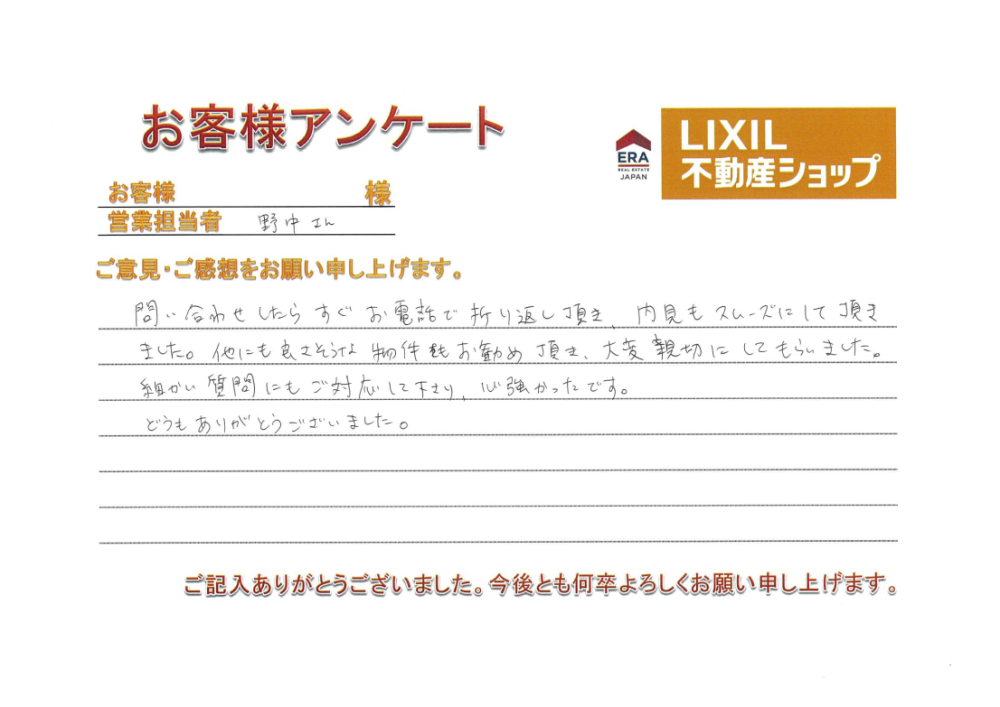 お客様アンケート
ERA
REAL ESTATE
JAPAN
LIXIL
不動産ショップ
お客様 様
営業担当者 野中さん
ご意見・ご感想をお願い申し上げます。
問い合わせしたらすぐお電話で折り返し頂き、内見もスムーズにして頂き
ました。他にも良さそうな物件もお勧め頂き、大変親切にしてもらいました。
細かい質問にもご対応して下さり、心強かったです。
どうもありがとうございました。
ご記入ありがとうございました。今後とも何卒よろしくお願い申し上げます。